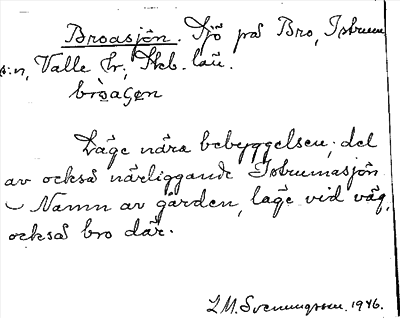 Broasjön. Sjö på Bro, Istrum
s:n, Valle hr, Skb. län.
bròaʃən
Läge nära bebyggelsen; del
av också närliggande Istrumasjön
– Namn av gården, läge vid väg,
också bro där.
L.M. Svenungsson. 1946.